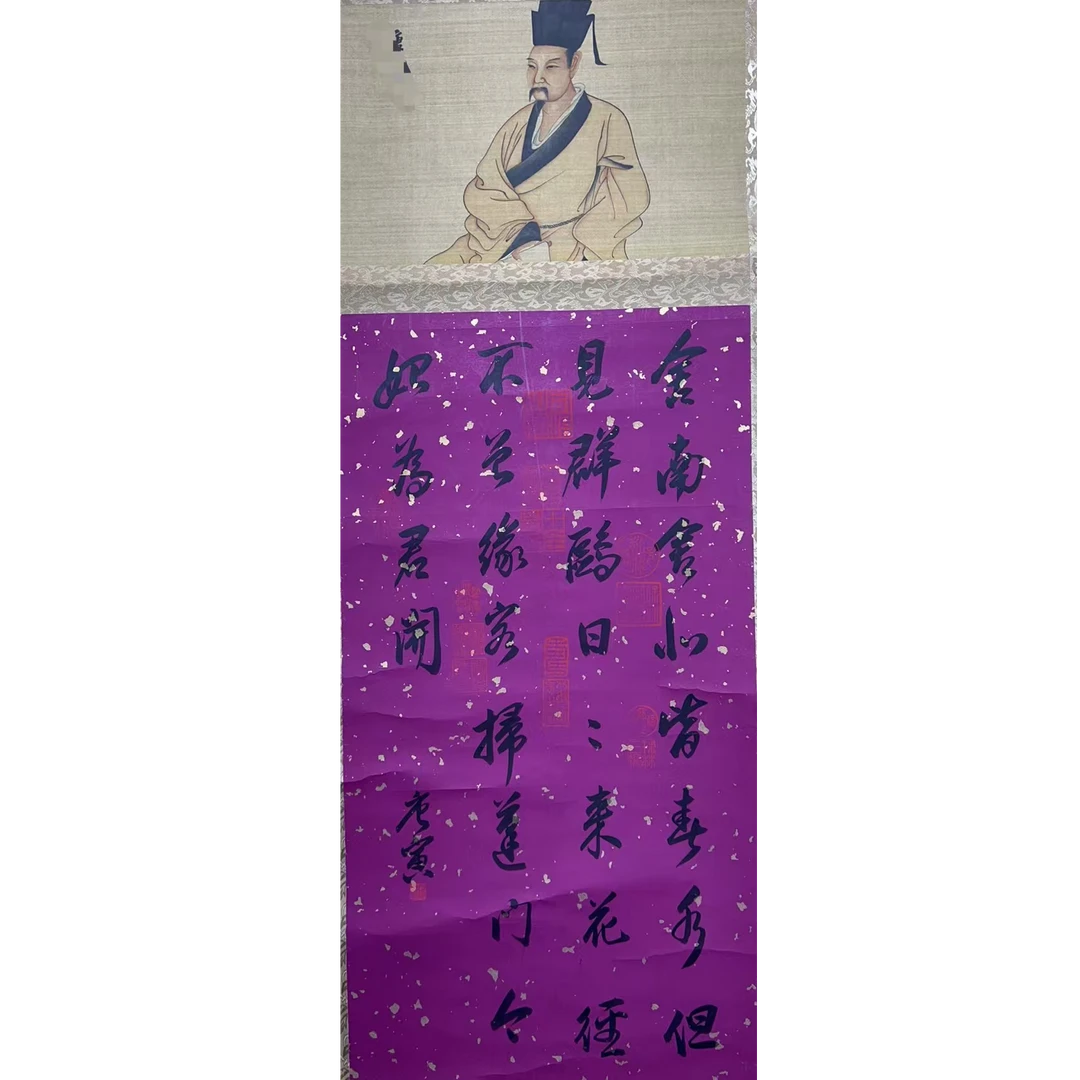 舍南舍北皆春水但
見群鷗日〻来花徑
不曾緣客掃蓬門今
始為君開
唐寅